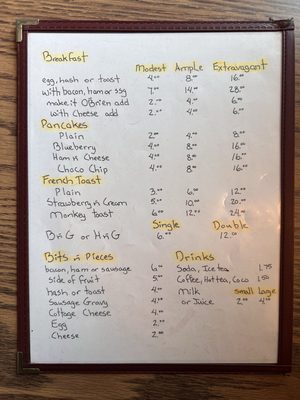 Breakfast
Modest Ample Extravagant
egg, hash or toast 4.00 8.00 16.00
with bacon, ham or ssg 7.00 14.00 28.00
make it O'Brien add 2.00 4.00 6.00
with cheese add 2.00 4.00 6.00
Pancakes
Plain 2.00 4.00 8.00
Blueberry 4.00 8.00 16.00
Ham n Cheese 4.00 8.00 16.00
Choco Chip 4.00 8.00 16.00
French Toast
Plain 3.00 6.00 12.00
Strawberry n Cream 5.00 10.00 20.00
Monkey toast 6.00 12.00 24.00
Single Double
B n G or H n G 6.00 12.00
Bits n Pieces
bacon, ham or sausage 6.00
side of fruit 5.00
hash or toast 4.00
Sausage Gravy 4.00
Cottage Cheese 4.00
Egg 2.00
Cheese 2.00
Drinks
Soda, Ice tea 1.75
Coffee, Hot tea, Coco 1.50
Milk small Large
or Juice 2.00 4.00